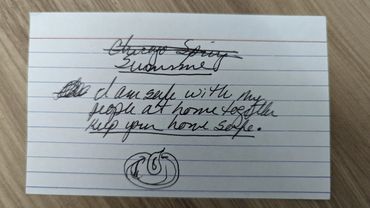 Chicago Spring
I am safe with my
people at home together
keep your home safe.